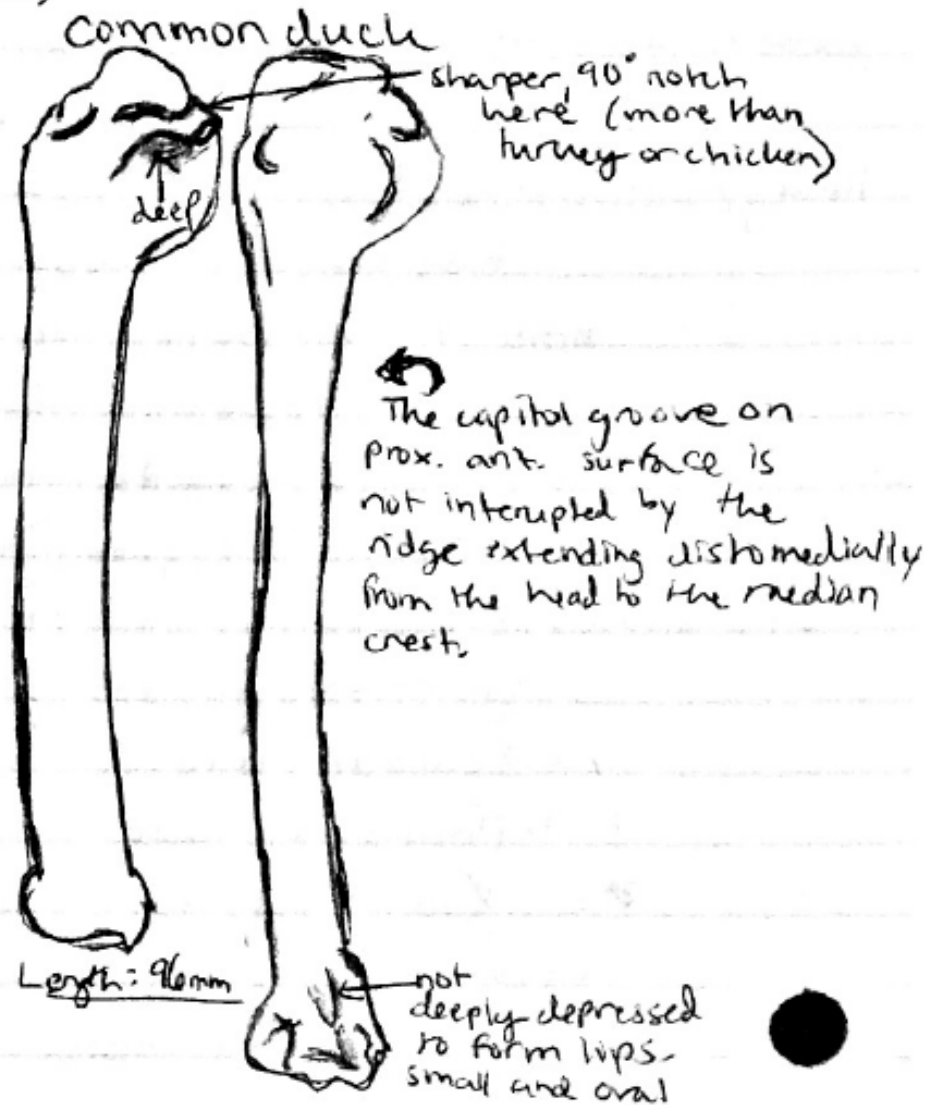 common duck
sharper, 90° notch
here (more than
turkey or chicken)
deep
The capitol groove on
prox. ant. surface is
not interupted by the
ridge extending distomedially
from the head to the median
crest.
Length: 96mm
not
deeply depressed
to form lips.
small and oval